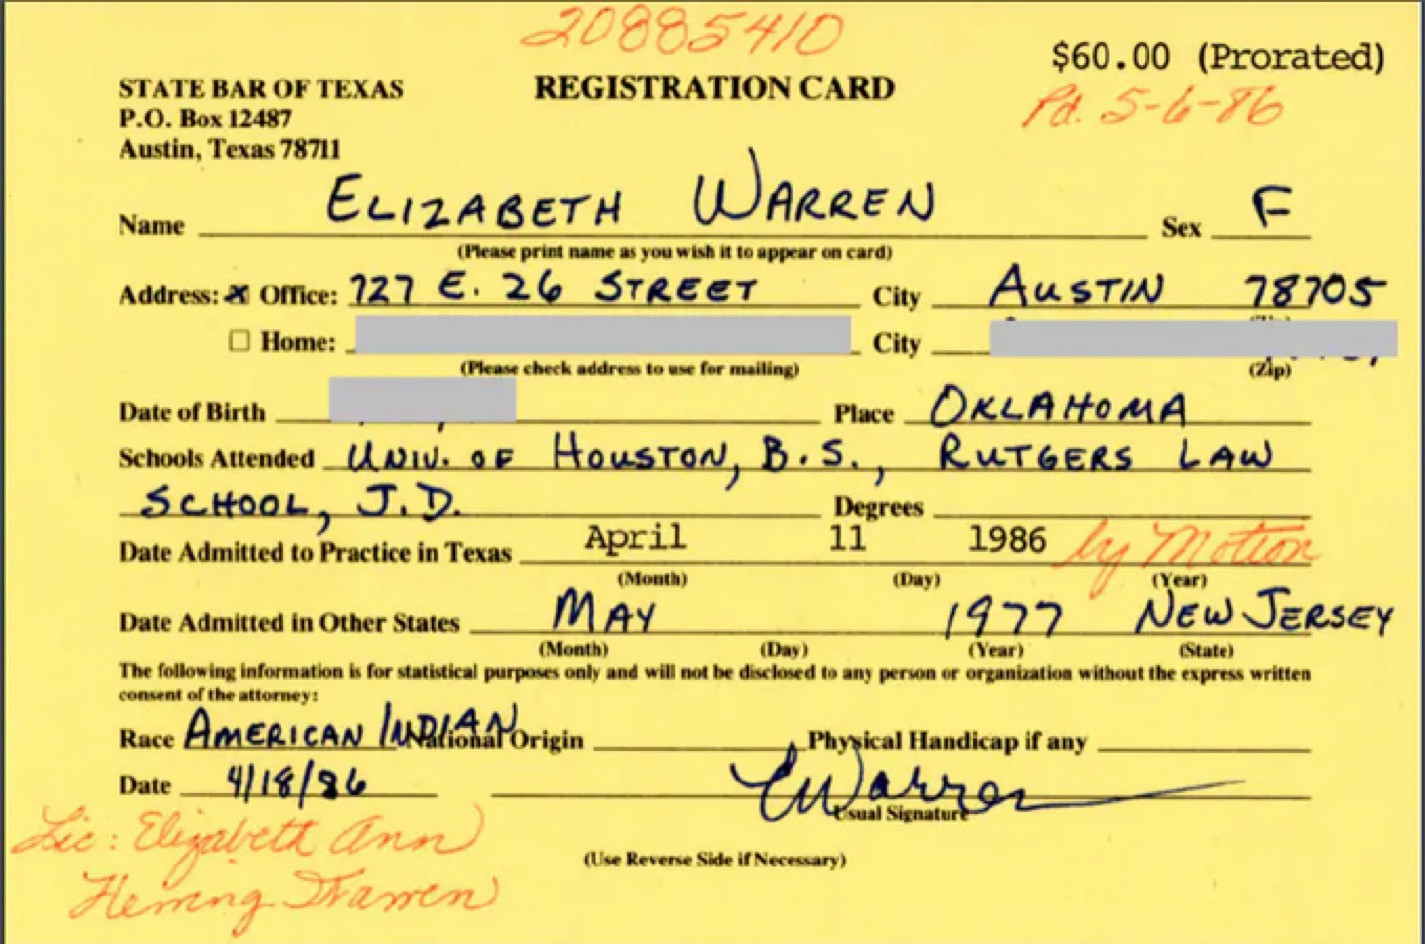 20885410
$60.00 (Prorated)
STATE BAR OF TEXAS REGISTRATION CARD
Pd. 5-6-86
P.O. Box 12487
Austin, Texas 78711
Name ELIZABETH WARREN Sex F
(Please print name as you wish it to appear on card)
Address: x Office: 727 E. 26 STREET City AUSTIN 78705
☐ Home: City
(Please check address to use for mailing) (Zip)
Date of Birth Place OKLAHOMA
Schools Attended UNIV. OF HOUSTON, B.S., RUTGERS LAW
SCHOOL, J.D. Degrees
Date Admitted to Practice in Texas April 11 1986 by Motion
(Month) (Day) (Year)
Date Admitted in Other States MAY 1977 NEW JERSEY
(Month) (Day) (Year) (State)
The following information is for statistical purposes only and will not be disclosed to any person or organization without the express written
consent of the attorney:
Race AMERICAN INDIAN National Origin Physical Handicap if any
Date 4/18/86 EWarren
Usual Signature
Lic: Elizabeth Ann
Herring Warren
(Use Reverse Side if Necessary)